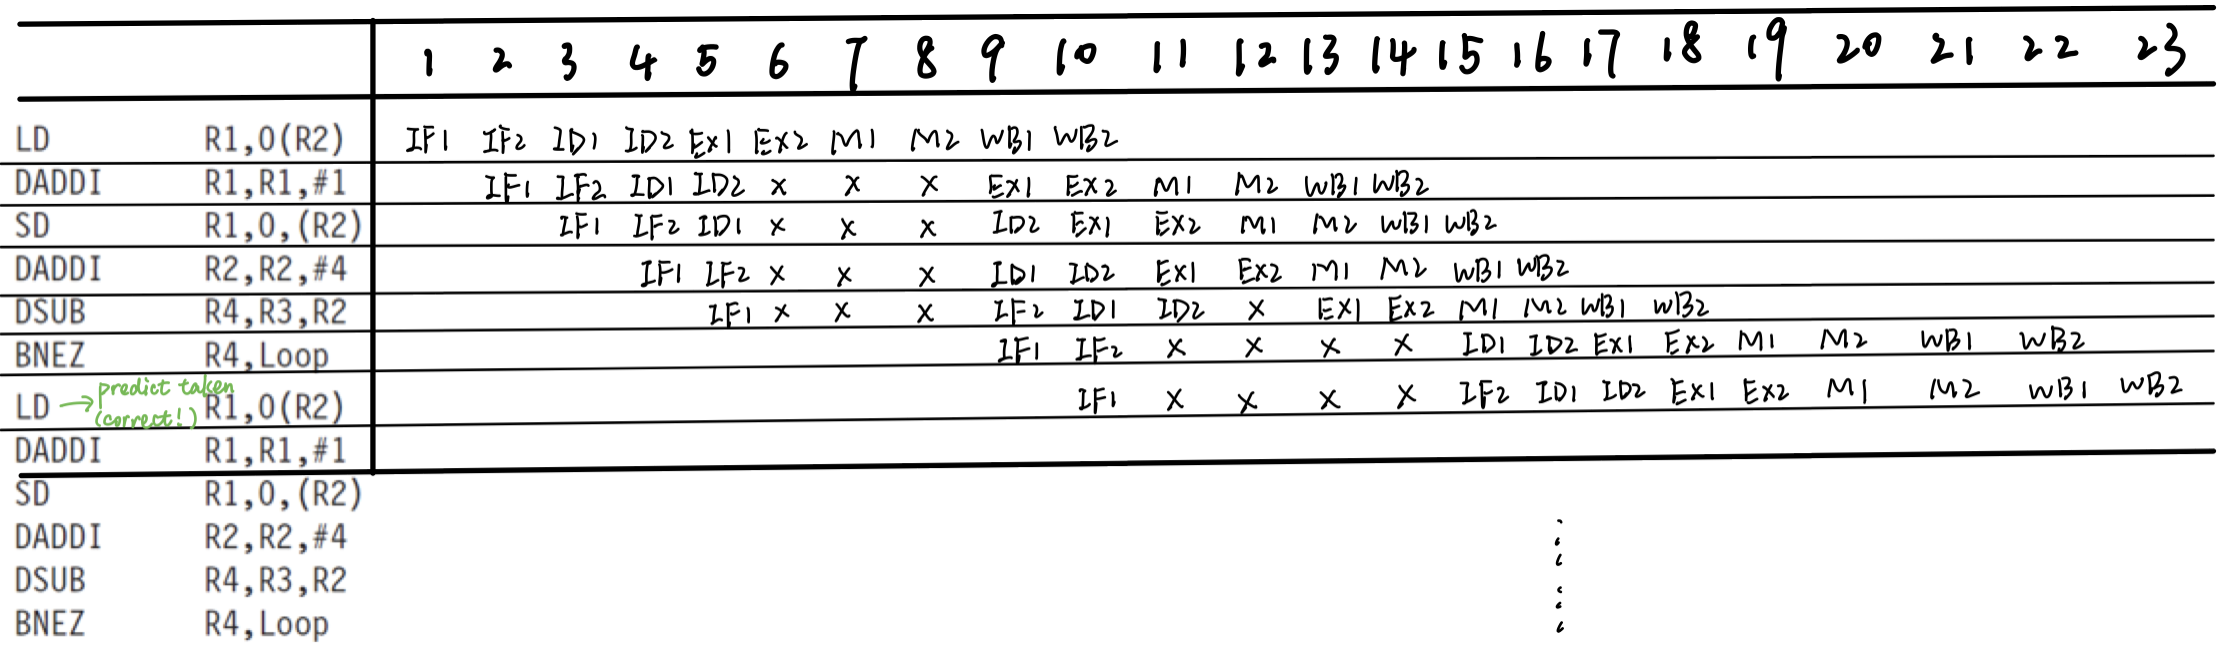 1 2 3 4 5 6 7 8 9 10 11 12 13 14 15 16 17 18 19 20 21 22 23
LD R1,0(R2) IF1 IF2 ID1 ID2 EX1 EX2 M1 M2 WB1 WB2
DADDI R1,R1,#1 IF1 IF2 ID1 ID2 x x x EX1 EX2 M1 M2 WB1 WB2
SD R1,0,(R2) IF1 IF2 ID1 x x x ID2 EX1 EX2 M1 M2 WB1 WB2
DADDI R2,R2,#4 IF1 IF2 x x x ID1 ID2 EX1 EX2 M1 M2 WB1 WB2
DSUB R4,R3,R2 IF1 x x x IF2 ID1 ID2 x EX1 EX2 M1 M2 WB1 WB2
BNEZ R4,Loop IF1 IF2 x x x x ID1 ID2 EX1 EX2 M1 M2 WB1 WB2
predict taken
LD → R1,0(R2) IF1 x x x x IF2 ID1 ID2 EX1 EX2 M1 M2 WB1 WB2
(correct!)
DADDI R1,R1,#1
SD R1,0,(R2)
DADDI R2,R2,#4
DSUB R4,R3,R2
BNEZ R4,Loop